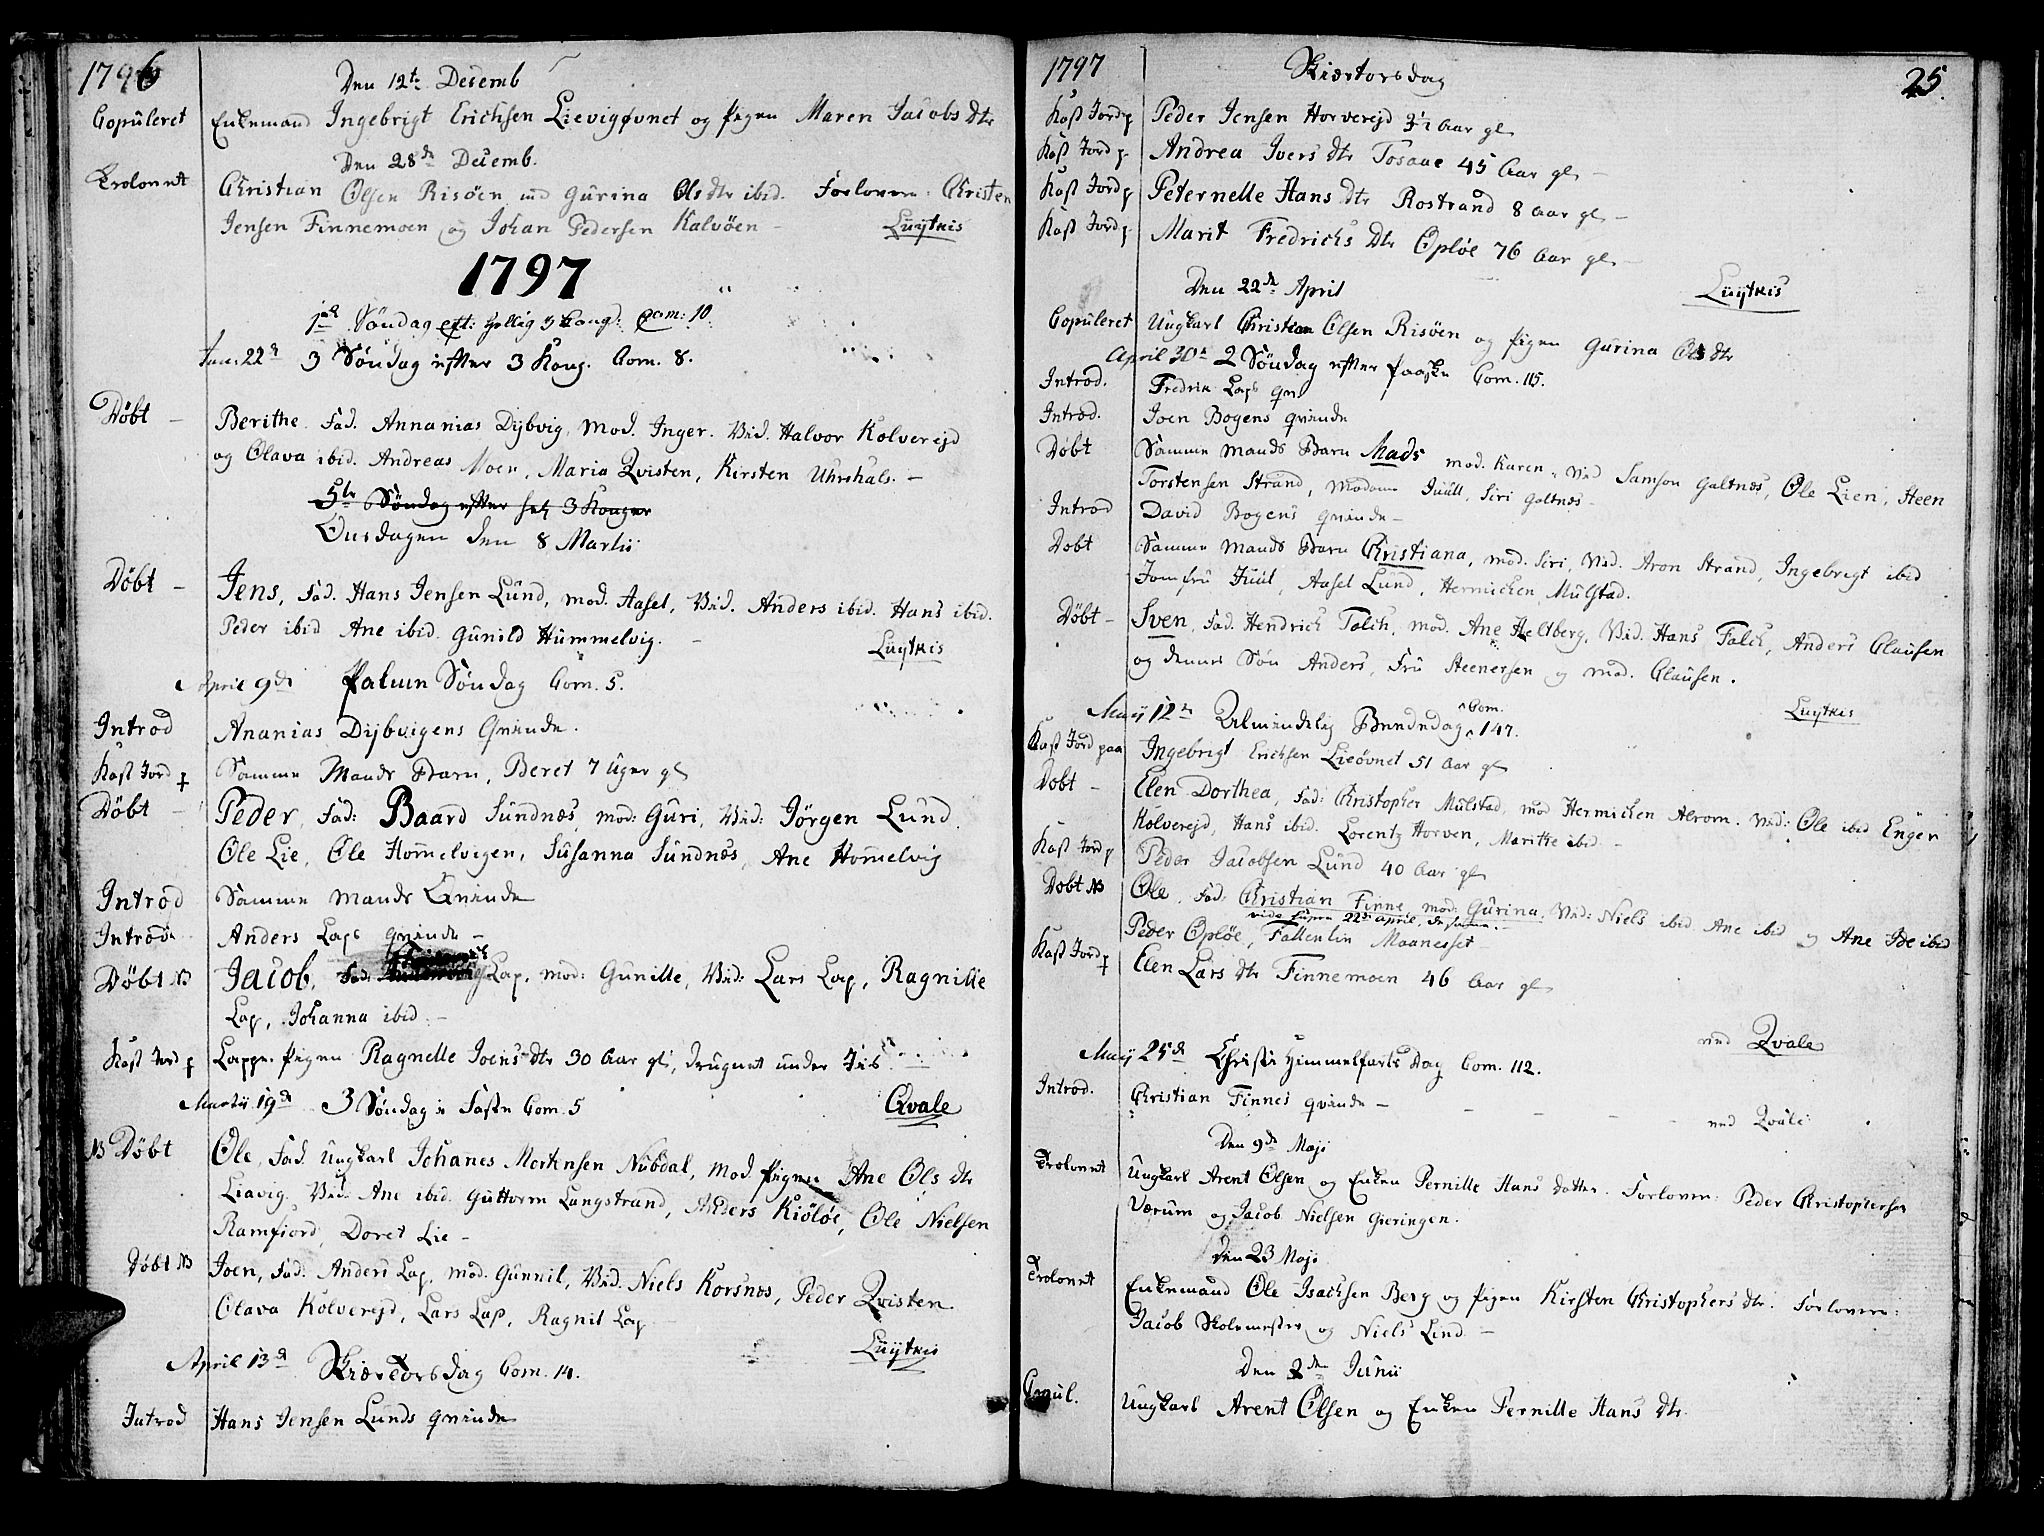 1796
Den 12te Decemb
Copuleret Enkemand Ingebrigt Erichsen Lievigøvnet og Pigen Maren Jacobs Dtr
Den 28de Decemb.
Trolovet Christian Olsen Risöen med Gurina Ols Dtr ibid. Forlovere: Christen
Jensen Finnemoen og Johan Pedersen Kalvöen - Luytkis
1797
1ste Søndag eft: Hellig 3 Kong: Com: 10
Janr 22de 3 Søndag efter 3 Kong. Com. 8.
Döbt - Berithe. Fad. Annanias Dybvig, Mod. Inger. Vid. Halvor Kolvereyd
og Olava ibid. Andreas Moen, Maria Qvisten, Kirsten Uhrshals. -
5te Søndag efter hel 3 Konger
Onsdagen den 8 Martii
Döbt - Jens, Fad. Hans Jensen Lund, Mod. Aasel, Vid. Anders ibid. Hans ibid.
Peder ibid Ane ibid. Gunild Hummelvig. - Luytkis
April 9de Palum Söndag Com. 5.
Introd Ananias Dijbvigens Qvinde.
Kast Jord p Samme Mands Barn, Beret 7 Uger gl
Döbt - Peder, Fad: Baard Sundnæs, Mod: Guri, Vid: Jörgen Lund
Ole Lie, Ole Homelvigen, Susanna Sundnæs, Ane Homelvig
Introd Samme Mands Qvinde
Introd. Anders Laps Qvinde -
Döbt NB Jacob, Fad: Lap, Mod: Gunille, Vid: Lars Lap, Ragnille
Lap, Johanna ibid. -
Kast Jord p Lappe-Pigen Ragnelle Joens Dtr 30 Aar gl, drugnet under Iis
Martii 19de 3 Söndag i Faste Com. 5 Qvale
NB Döbt Ole, Fad. Ungkarl Johanes Mortensen Nubdal, Mod Pigen Ane Ols Dtr
Liavig. Vid. Ane ibid. Guttorm Langstrand, Anders Kiölöe, Ole Nielsen
Ramfiord, Doret Lie -
Döbt NB Joen, Fad. Anders Lap, Mod. Gunnil, Vid. Niels Korsnæs, Peder Qvisten
Olava Kolvereyd, Lars Lap, Ragnil Lap - Luytkis
April 13de Skiærtorsdag Com. 14.
Introd Hans Jensen Lunds Qvinde
1797 Skiærtorsdag 25.
Kast Jord p Peder Jensen Horvereyd 3½ Aar gl
Kast Jord p. Andrea Ivers Dtr Fosaae 45 Aar gl -
Kast Jord p Peternelle Hans Dtr Rostrand 8 Aar gl -
Kast Jord p Marit Fredrichs Dtr Oplöe 76 Aar gl -
Den 22de April Luytkis
Copuleret Ungkarl Christian Olsen Risöen og Pigen Gurina Ols Dtr
April 30te 2 Söndag efter Paaske Com. 115.
Introd. Fredrik Laps Qv.
Introd. Joen Bogens Qvinde
Döbt Samme Mands Barn Mads Mod. Karen. Vid Samson Galtnæs, Ole Lien, Steen
Torstensen Strand, Madame Juull, Siri Galtnæs -
Introd David Bogens Qvinde -
Dobt Samme Mands Barn Christiana, Mod. Siri, Vid. Aron Strand, Ingebrigt ibid
Jomfru Juul, Aasel Lund, Hermichen Mulstad.
Döbt - Sven, Fad. Hendrich Falch, Mod. Ane Heltberg, Vid. Hans Falch, Anders Clausen
og dennes Søn Anders, Fru Steenersen og Mad. Clausen. Luytkis
Maij 12te Almindelig Bededag Com. 147.
Kast Jord paa Ingebrigt Erichsen Lieövnet 51 Aar gl
Dobt - Elen Dorthea, Fad: Christopher Mulstad, Mod Hermichen Alrom. Vid: Ole ibid Engen
Kolvereyd, Hans ibid. Lorentz Horven, Marithe ibid -
Kast Jord p Peder Jacobsen Lund 40 Aar gl
Dobt NB Ole, Fad: Christian Finne, Mod: Gurina. Vid: Niels ibid Ane ibid og Ane Ide ibid
vide supra 22de April, de samme.
Peder Oplöe, Fallentin Maaneset
Kast Jord p Elen Lars Dtr Finnemoen 46 Aar gl
ved Qvale
Maij 25de Christi Himmelfarts Dag Com. 112.
Introd. Christian Finnes Qvinde - - - - ved Qvale
Den 9de Maji
Trolovet Ungkarl Arent Olsen og Enken Pernille Hans Datter. Forlovere: Peder Christophersen
Værum og Jacob Nielsen Gieringen.
Den 23 Maji
Trolovet Enkemand Ole Isachsen Berg og Pigen Kirsten Christophers Dtr. Forlovere:
Jacob Skolemester og Niels Lind -
Den 2den Junii
Copul. Ungkarl Arent Olsen og Enken Pernille Hans Dtr.